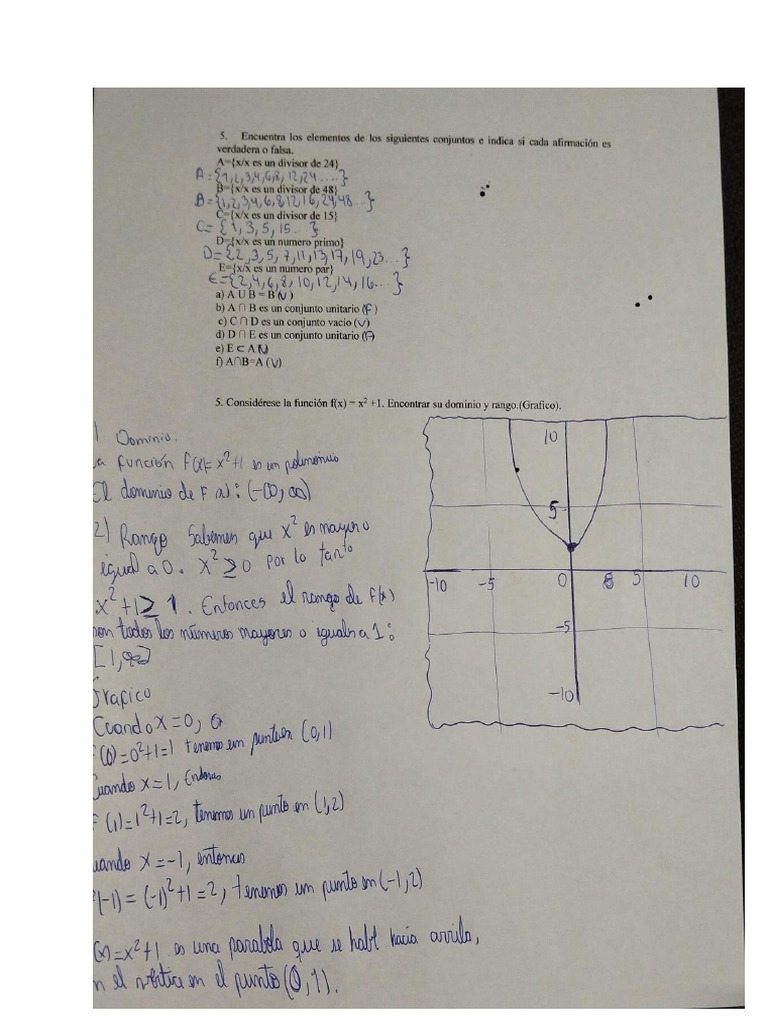 5. Encuentra los elementos de los siguientes conjuntos e indica si cada afirmación es
verdadera o falsa.
A={x/x es un divisor de 24}
A={1,2,3,4,6,8,12,24....}
B={x/x es un divisor de 48}
B={1,2,3,4,6,8,12,16,24,48...}
C={x/x es un divisor de 15}
C={1,3,5,15...}
D={x/x es un numero primo}
D={2,3,5,7,11,13,17,19,23...}
E={x/x es un numero par}
E={2,4,6,8,10,12,14,16...}
a) A ∪ B = B (V)
b) A ∩ B es un conjunto unitario (F)
c) C ∩ D es un conjunto vacio (V)
d) D ∩ E es un conjunto unitario
e) E ⊂ A
f) A∩B=A (V)
5. Considérese la función f(x) = x² +1. Encontrar su dominio y rango.(Grafico).
Dominio.
a función F(x)=x²+1 es un polinomio
El dominio de F(x): (-∞, ∞)
2) Rango Sabemos que x² es mayor o
igual a 0. x² ≥ 0 por lo tanto
x²+1 ≥ 1. Entonces el rango de F(x)
son todos los números mayores o iguals a 1:
[1,∞)
Grafico
Cuando x=0,
(0)=0²+1=1 tenemos un punto en (0,1)
Cuando x=1, Entonces
F(1)=1²+1=2, tenemos un punto en (1,2)
uando x=-1, entonces
(-1)=(-1)²+1=2, tenemos um punto en (-1,2)
(x)=x²+1 es una parabola que se habt hacia arriba,
n el vértice en el punto (0,1).
10
5
-10 -5 0 8 5 10
-5
-10